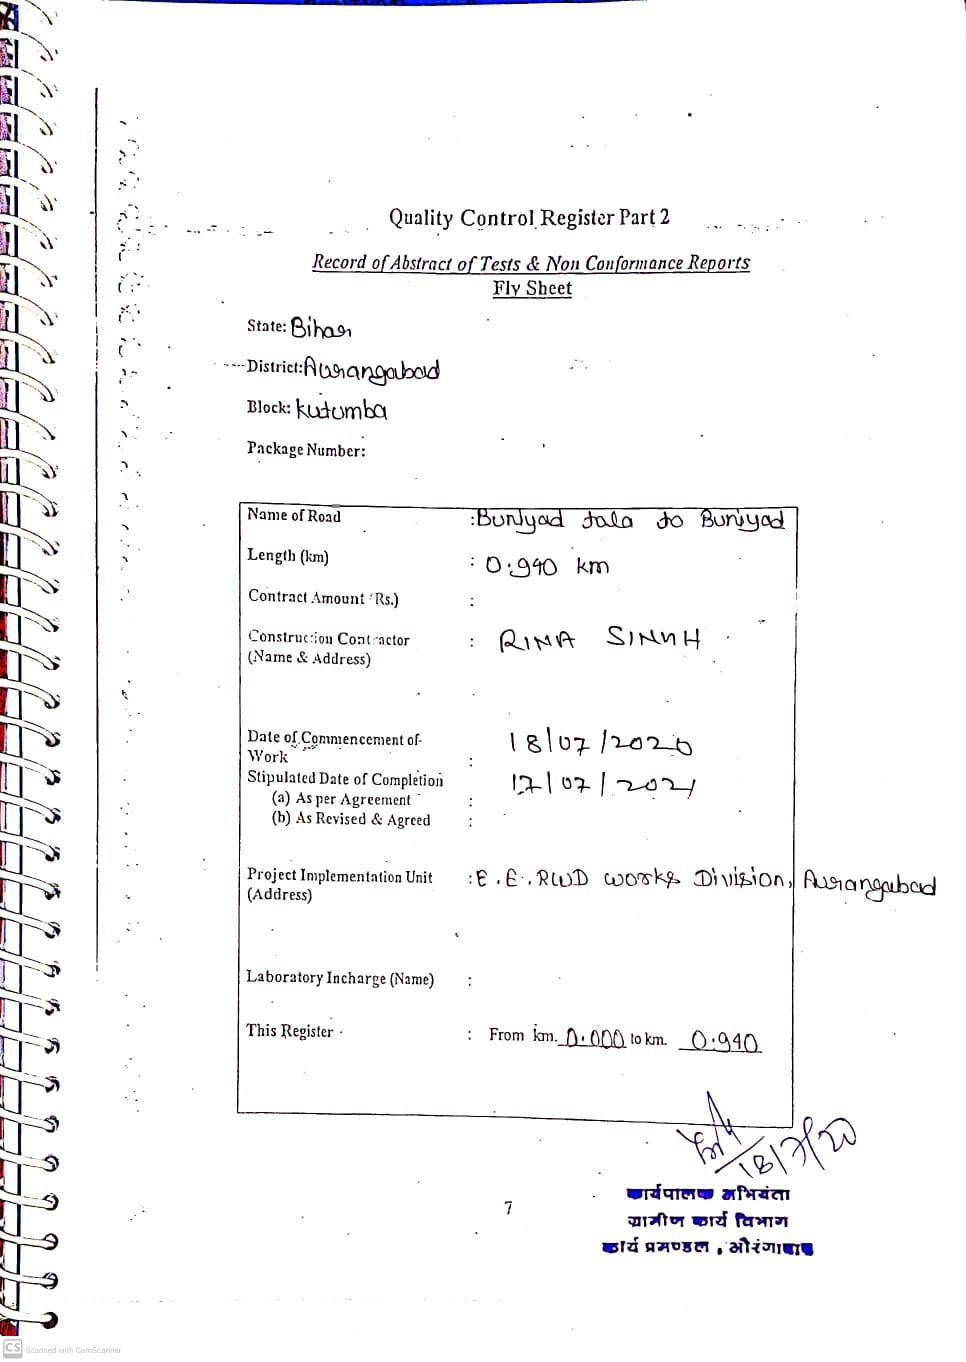 Quality Control Register Part 2
Record of Abstract of Tests & Non Conformance Reports
Fly Sheet
State: Bihar
District: Aurangabad
Block: Kutumba
Package Number:
Name of Road : Buniyad tala to Buniyad
Length (km) : 0.940 km
Contract Amount (Rs.) :
Construction Contractor : RINA SINGH
(Name & Address)
Date of Commencement of 18/07/2020
Work :
Stipulated Date of Completion 17/07/2021
(a) As per Agreement :
(b) As Revised & Agreed :
Project Implementation Unit : E.E. RWD works Division, Aurangabad
(Address)
Laboratory Incharge (Name) :
This Register : From km. 0.000 to km. 0.940
18/7/20
7
कार्यपालक अभियंता
ग्रामीण कार्य विभाग
कार्य प्रमण्डल, औरंगाबाद
CS Scanned with CamScanner